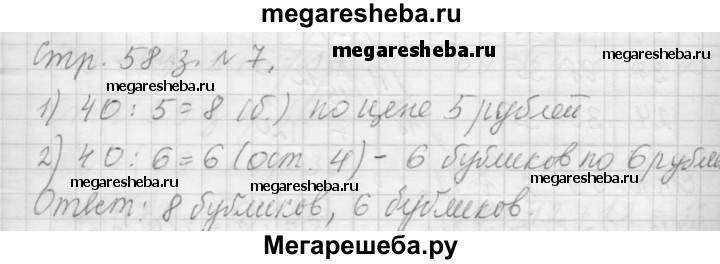 megaresheba.ru
Стр. 58 з. №7.
megaresheba.ru
megaresheba.ru
megaresheba.ru
1) 40 : 5 = 8 (б.) по цене 5 рублей
2) 40 : 6 = 6 (ост. 4) - 6 бубликов по 6 рубле
megaresheba.ru
megaresheba.ru
megaresheba.ru
Ответ: 8 бубликов, 6 бубликов.
Мегарешеба.ру